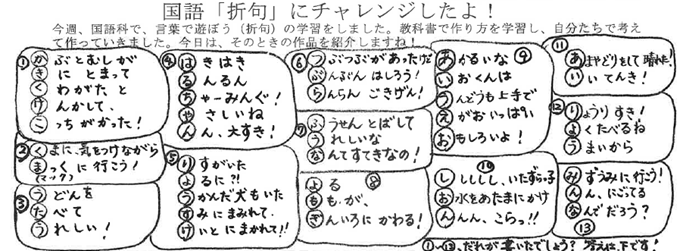 国語「折句」にチャレンジしたよ!
今週、国語科で、言葉で遊ぼう(折句)の学習をしました。教科書で作り方を学習し、自分たちで考え
て作っていきました。今日は、そのときの作品を紹介しますね!
①
かぶとむしが
きにとまって
くわがたと
けんかして、
こっちがかった!
②
くまに、気をつけながら
まっくに行こう!
(マック)
③
うどんを
たべて
うれしい!
④
はきはき
るんるん
ちゃーみんぐ!
やさしいね
ん、大すき!
⑤
りすがいた
よるに?!
うがんだ犬もいた
すみにまみれて、
けいとにまかれて!!
⑥
つぶつぶがあったりだ
ぶんぶんはしろう!
らんらんごきげん!
⑦
ふうせんとばして
うれしいな
なんてすてきなの!
⑧
よる
もも、が、
ぎんいろにかわる!
⑨
あかるいな
いおくんは
うんどうも上手で
えがおいっぱい
おもしろいよ!
⑩
ししししし、いたずらっ子
お水をあたまにかけ
んんん、こらっ!!
⑪
あまやどりをして晴れた!
いいてんき!
⑫
りょうりすき!
よくたべるね
うまいから
⑬
みずうみに行こう!
んん、にごてる
なんでだろう?
①~⑬、だれが書いたでしょう?答えは下です!